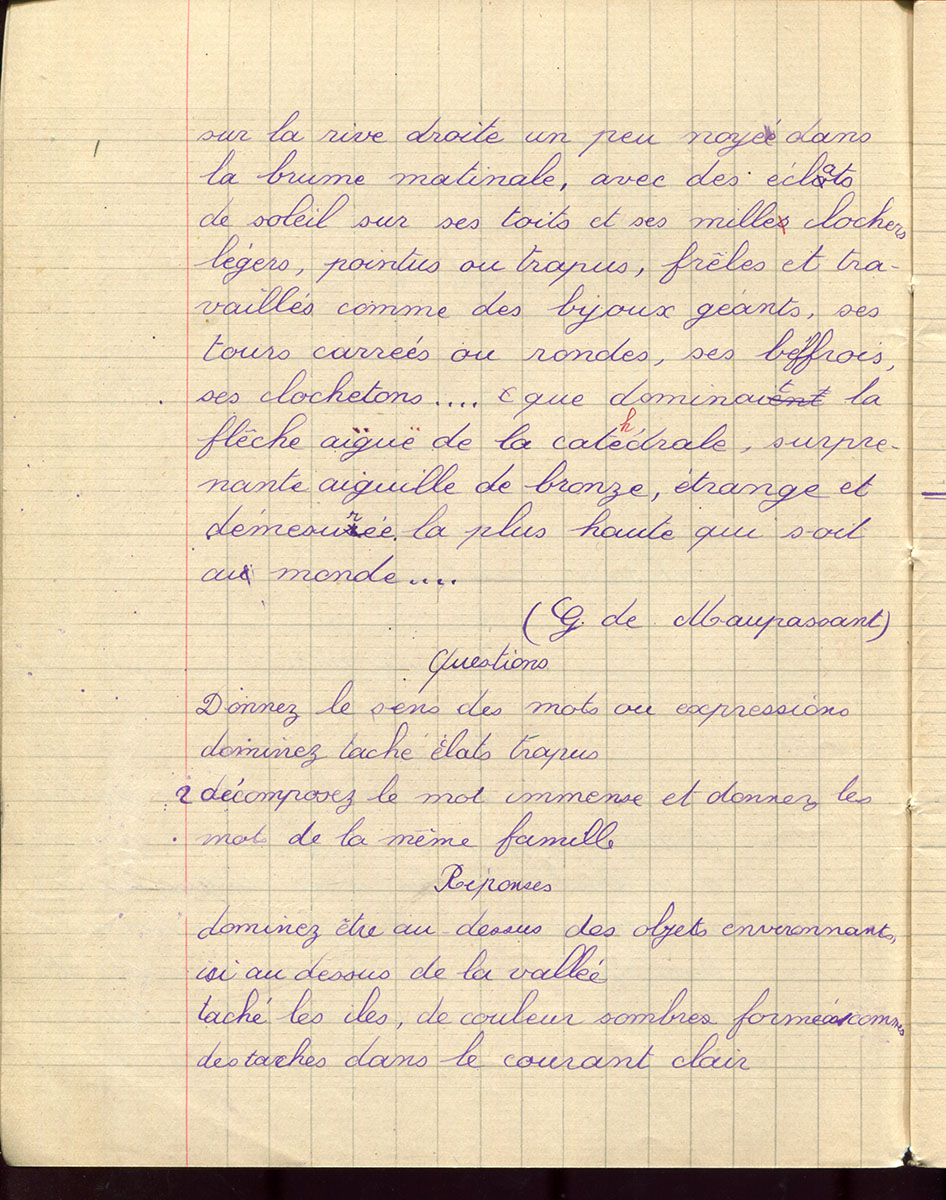 sur la rive droite un peu noyée dans
la brume matinale, avec des éclats
de soleil sur ses toits et ses mille clochers
légers, pointus ou trapus, frêles et tra-
vaillés comme des bijoux géants, ses
tours carreés ou rondes, ses béffrois,
ses clochetons.... que dominait la
flêche aïguë de la cathédrale, surpre-
nante aiguille de bronze, étrange et
démesurée. la plus haute qui soit
au monde....
(G. de Maupassant)
Questions
Donnez le sens des mots ou expressions
dominez taché élats trapus
2 décomposez le mot immense et donnez les
mots de la même famille
Réponses
dominez être au-dessus des objets environnants,
isi au dessus de la valleé
taché les iles, de couleur sombres formeás commes
des taches dans le courant clair